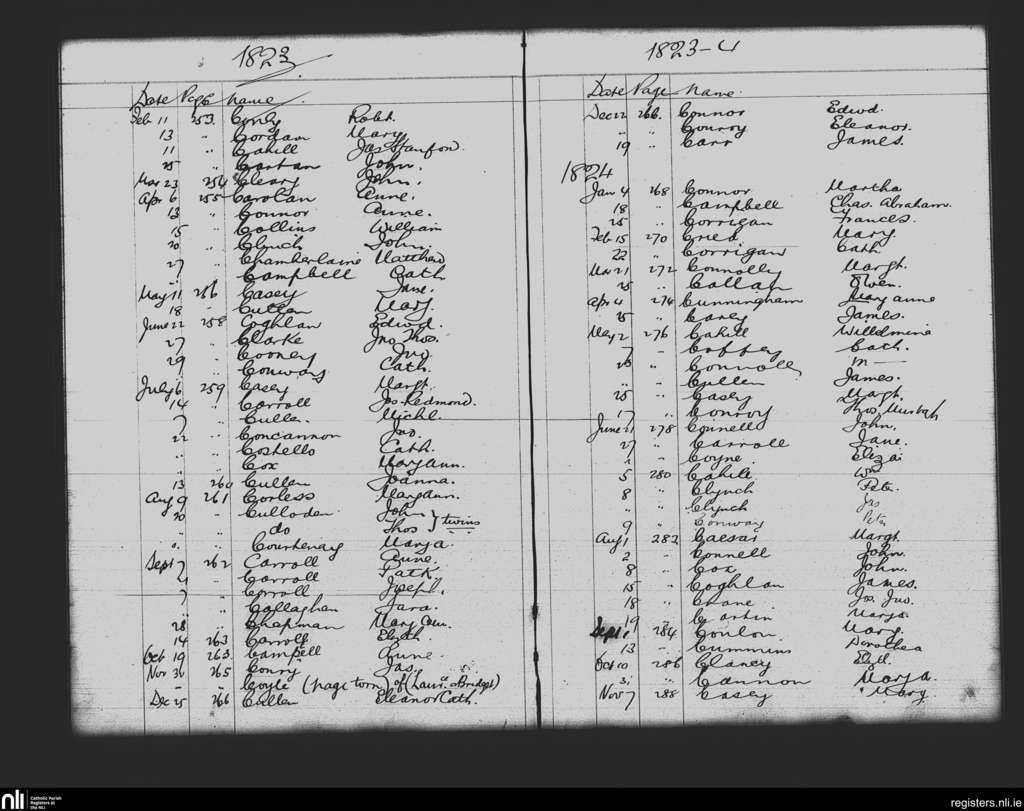 1823
Date Page Name
Feb 11 253 Conly Robt.
13 " Cordan Mary
11 " Cahill Jas Stanford.
25 " Cartan John.
Mar 23 254 Cleary John.
Apr 6 255 Carolan Anne.
13 " Connor Anne.
15 " Collins William
20 " Clynch John.
27 " Chamberlaine Matthew
" Campbell Cath.
May 11 256 Casey Jane.
18 " Cullen Mary.
June 22 258 Coghlan Edwd.
27 " Clarke Jno Thos.
29 " Cooney Jno.
" Conway Cath.
July 6 259 Casey Margt.
14 " Carroll Jos Redmond.
7 " Cullen. Michl.
22 " Concannon Jno.
" " Costello Cath.
" " Cox Maryann.
13 260 Cullen Joanna.
Aug 9 261 Corless Maryann.
20 " Culloden John } twins
" " do Thos
" " Courtenay Marya.
Sept 7 262 Carroll Anne.
" Carroll Patk.
7 " Corroll Joseph.
" " Callaghan Sara.
28 " Chapman Mary Ann.
14 263 Carroll Elizth.
Oct 19 263 Campell Anne.
Nov 31 265 Conry Jas.
" " Coyle (page torn) of (Laurce & Bridget)
Dec 25 266 Cullen Eleanor Cath.
1823-4
Date Page Name.
Dec 22 266. Connor Edwd.
" " Conroy Eleanor.
19 " Carr James.
1824
Jan 4 268 Connor Martha
18 " Campbell Chas. Abraham.
25 " Corrigan Frances.
Feb 15 270 Mary.
22 " Corrigan Cath
Mar 21 272 Connolly Margt.
25 " Callan Owen.
Apr 4 274 Cunningham Mary anne
25 " Carey James.
May 2 276 Cahill Willdmina
7 " Coffey Cath.
26 " Connolly M—
" " Cullen James.
25 " Casey Margt.
17 " Conroy Thos.
June 21 278 Connell John.
27 " Carroll Jane.
" " Coyne. Eliza.
5 280 Cahill. Wm
8 " Clynch Peter.
" " Clynch Jas
9 " Conway Peter
Aug 1 282 Caesar Margt.
2 " Connell John.
8 " Cox John.
15 " Coghlan James.
18 " Crane Jos. Jno.
19 " Cartin Marya.
Sept 1 284 Conlon Mary.
13 " Cummins Dorothea
Oct 10 286 Clancy Elizth.
31 " Cannon Marya.
Nov 7 288 Casey Mary
nli
Catholic Parish
Registers at
the NLI
registers.nli.ie